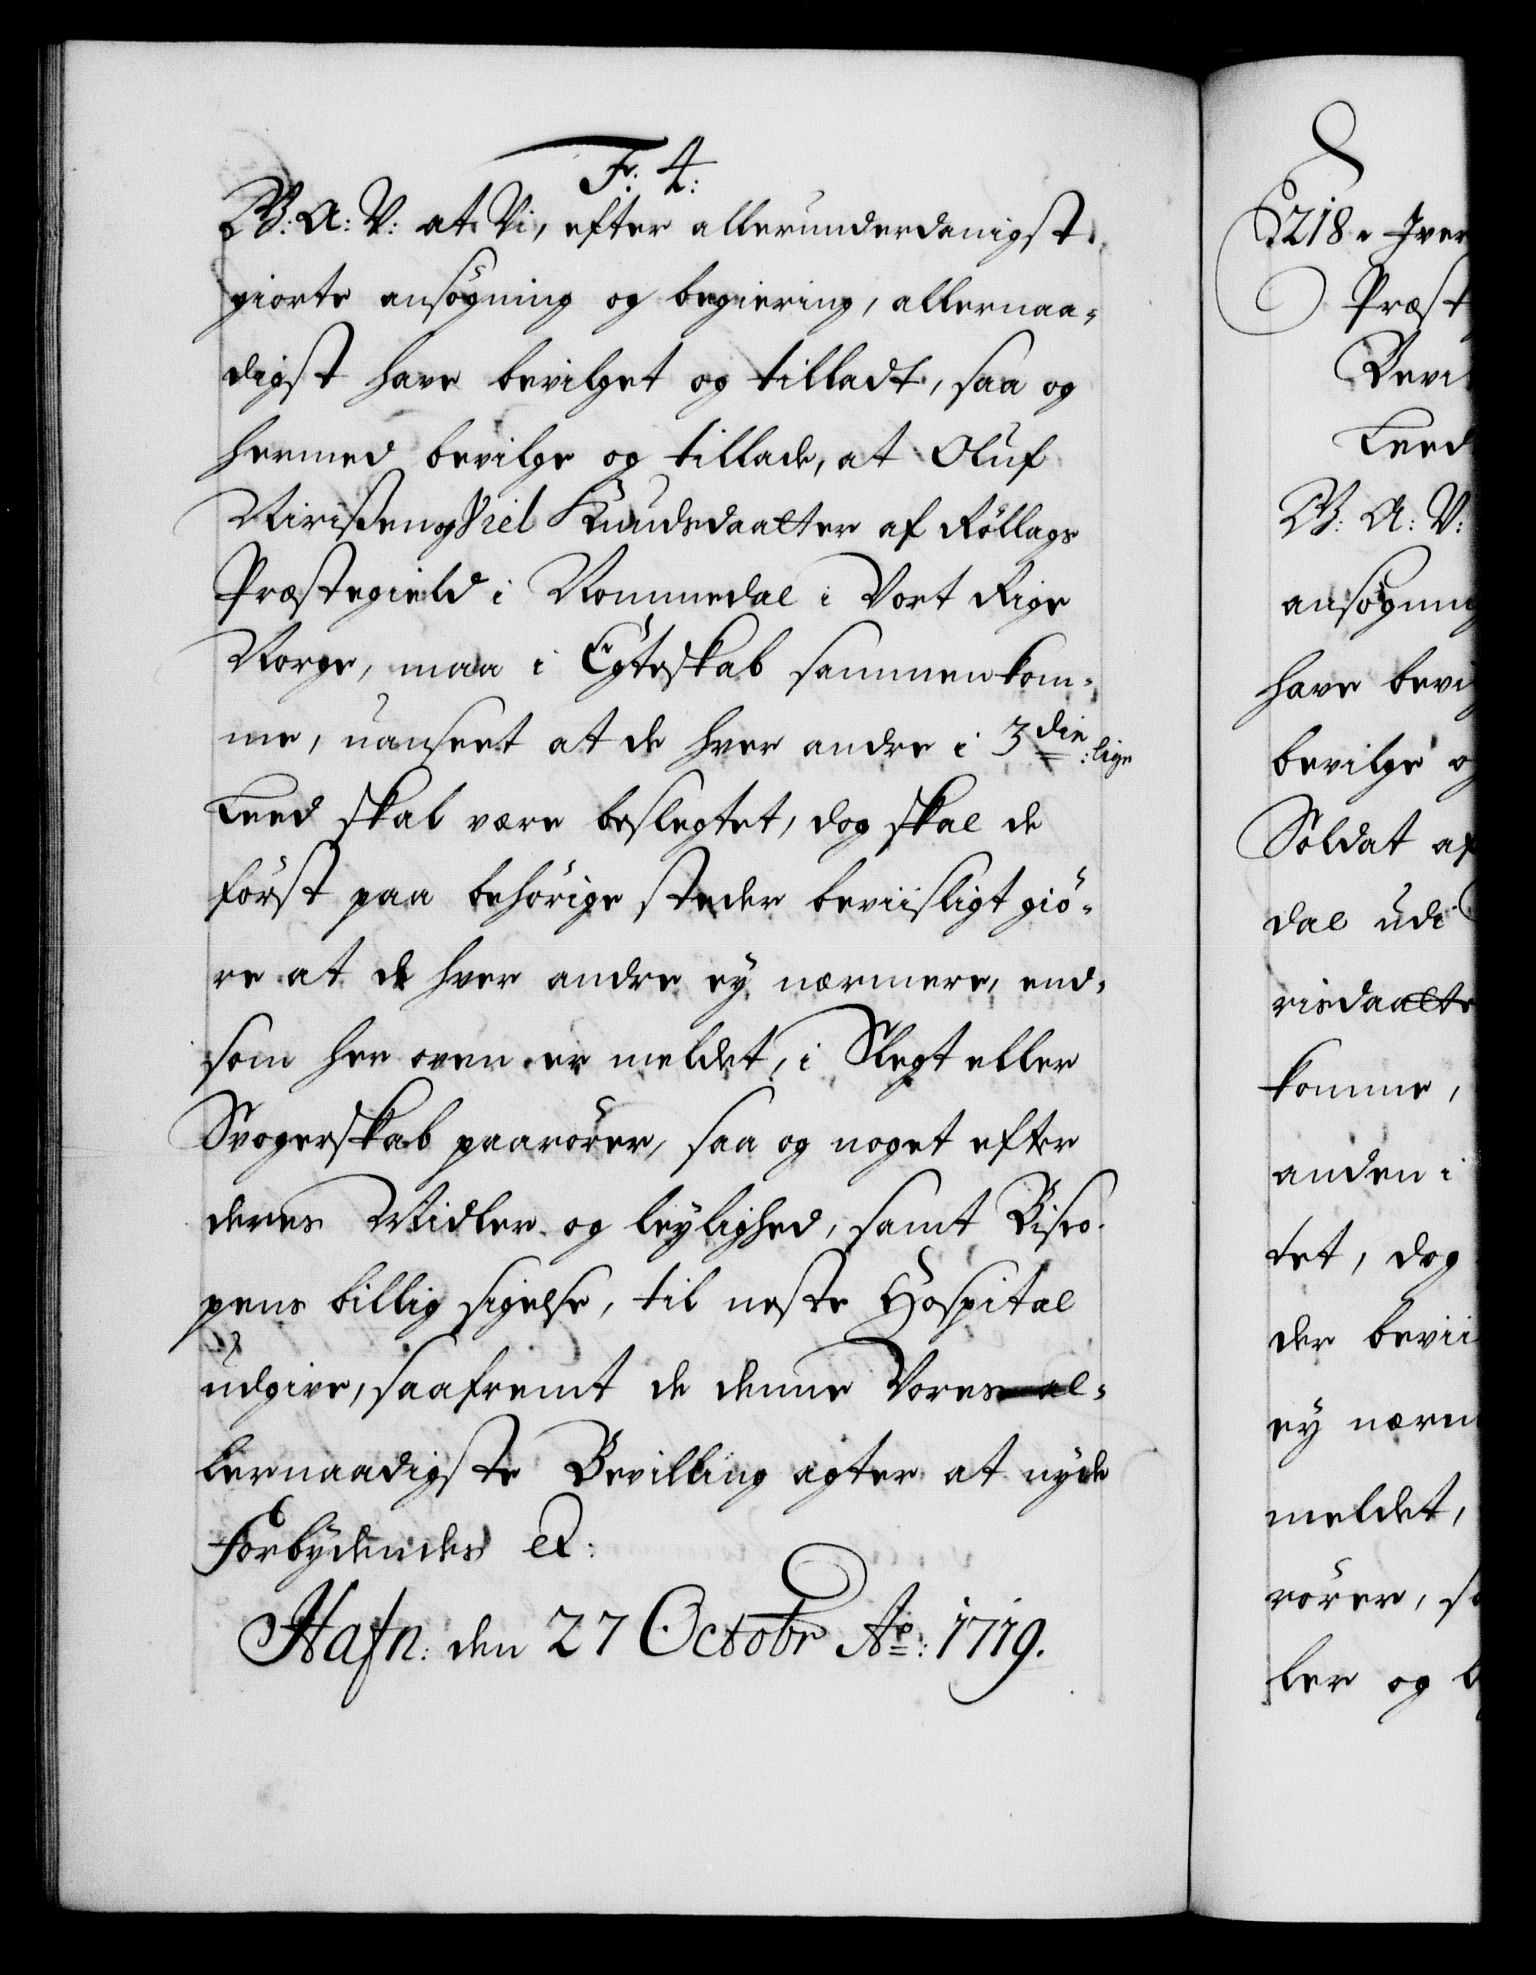 F: 4:
W: A: V: at Vi, efter allerunderdanigst
giorte ansøgning og begiering, allernaa-
digst have bevilget og tilladt, saa og
hermed bevilge og tillade, at Oluf
Nirissen og Siel Knudsdaatter af Rollags
Præstegield i Nommedal i Vort Rige
Norge, maa i Egteskab sammenkom-
me, uanseet at de hver andre i 3die lige
Leed skal være beslegtet, dog skal de
først paa behørige steder beviisligt giø-
re at de hver andre ey nærmere, end-
som her oven er meldet, i Slegt eller
Svogerskab paarører, saa og noget efter
deres Midler og leylighed, samt Bisco-
pens billig sigelse, til neste Hospital
udgive, saafremt de denne Vores al-
lernaadigste Bevilling agter at nyde
Forbydendes etc:
Hafn: den 27 Octobr Ao: 1719.
218. Iver
Præst
Bevi
Leed
W: A: V:
ansøgning
have bevi
bevilge og
Soldat af
dal udi
risdaatte
komme,
anden i
tet, dog
der bevii
ey nærm
meldet,
rører, sa
ler og l